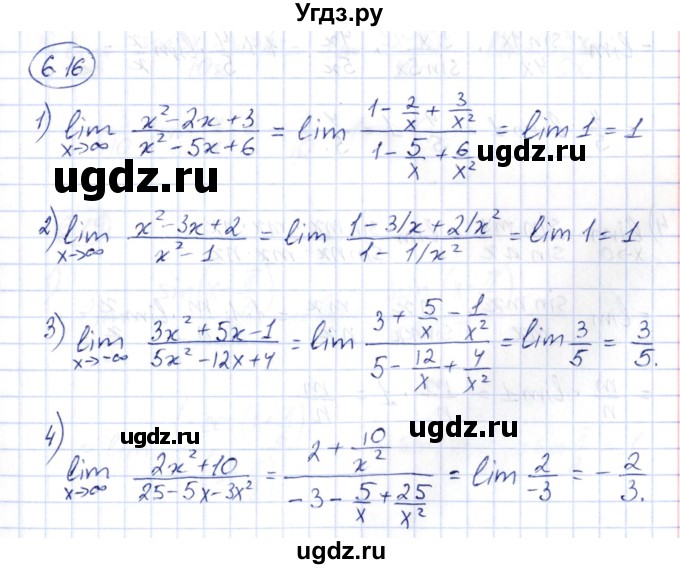 Угдз.ру
6.16
1) lim x→∞ (x² - 2x + 3)/(x² - 5x + 6) = lim (1 - 2/x + 3/x²)/(1 - 5/x + 6/x²) = lim 1 = 1
ugdz.ru ugdz.ru
2) lim x→∞ (x² - 3x + 2)/(x² - 1) = lim (1 - 3/x + 2/x²)/(1 - 1/x²) = lim 1 = 1
ugdz.ru
3) lim x→-∞ (3x² + 5x - 1)/(5x² - 12x + 4) = lim (3 + 5/x - 1/x²)/(5 - 12/x + 4/x²) = lim 3/5 = 3/5.
ugdz.ru ugdz.ru
4) lim x→∞ (2x² + 10)/(25 - 5x - 3x²) = (2 + 10/x²)/(-3 - 5/x + 25/x²) = lim 2/-3 = -2/3.
ugdz.ru